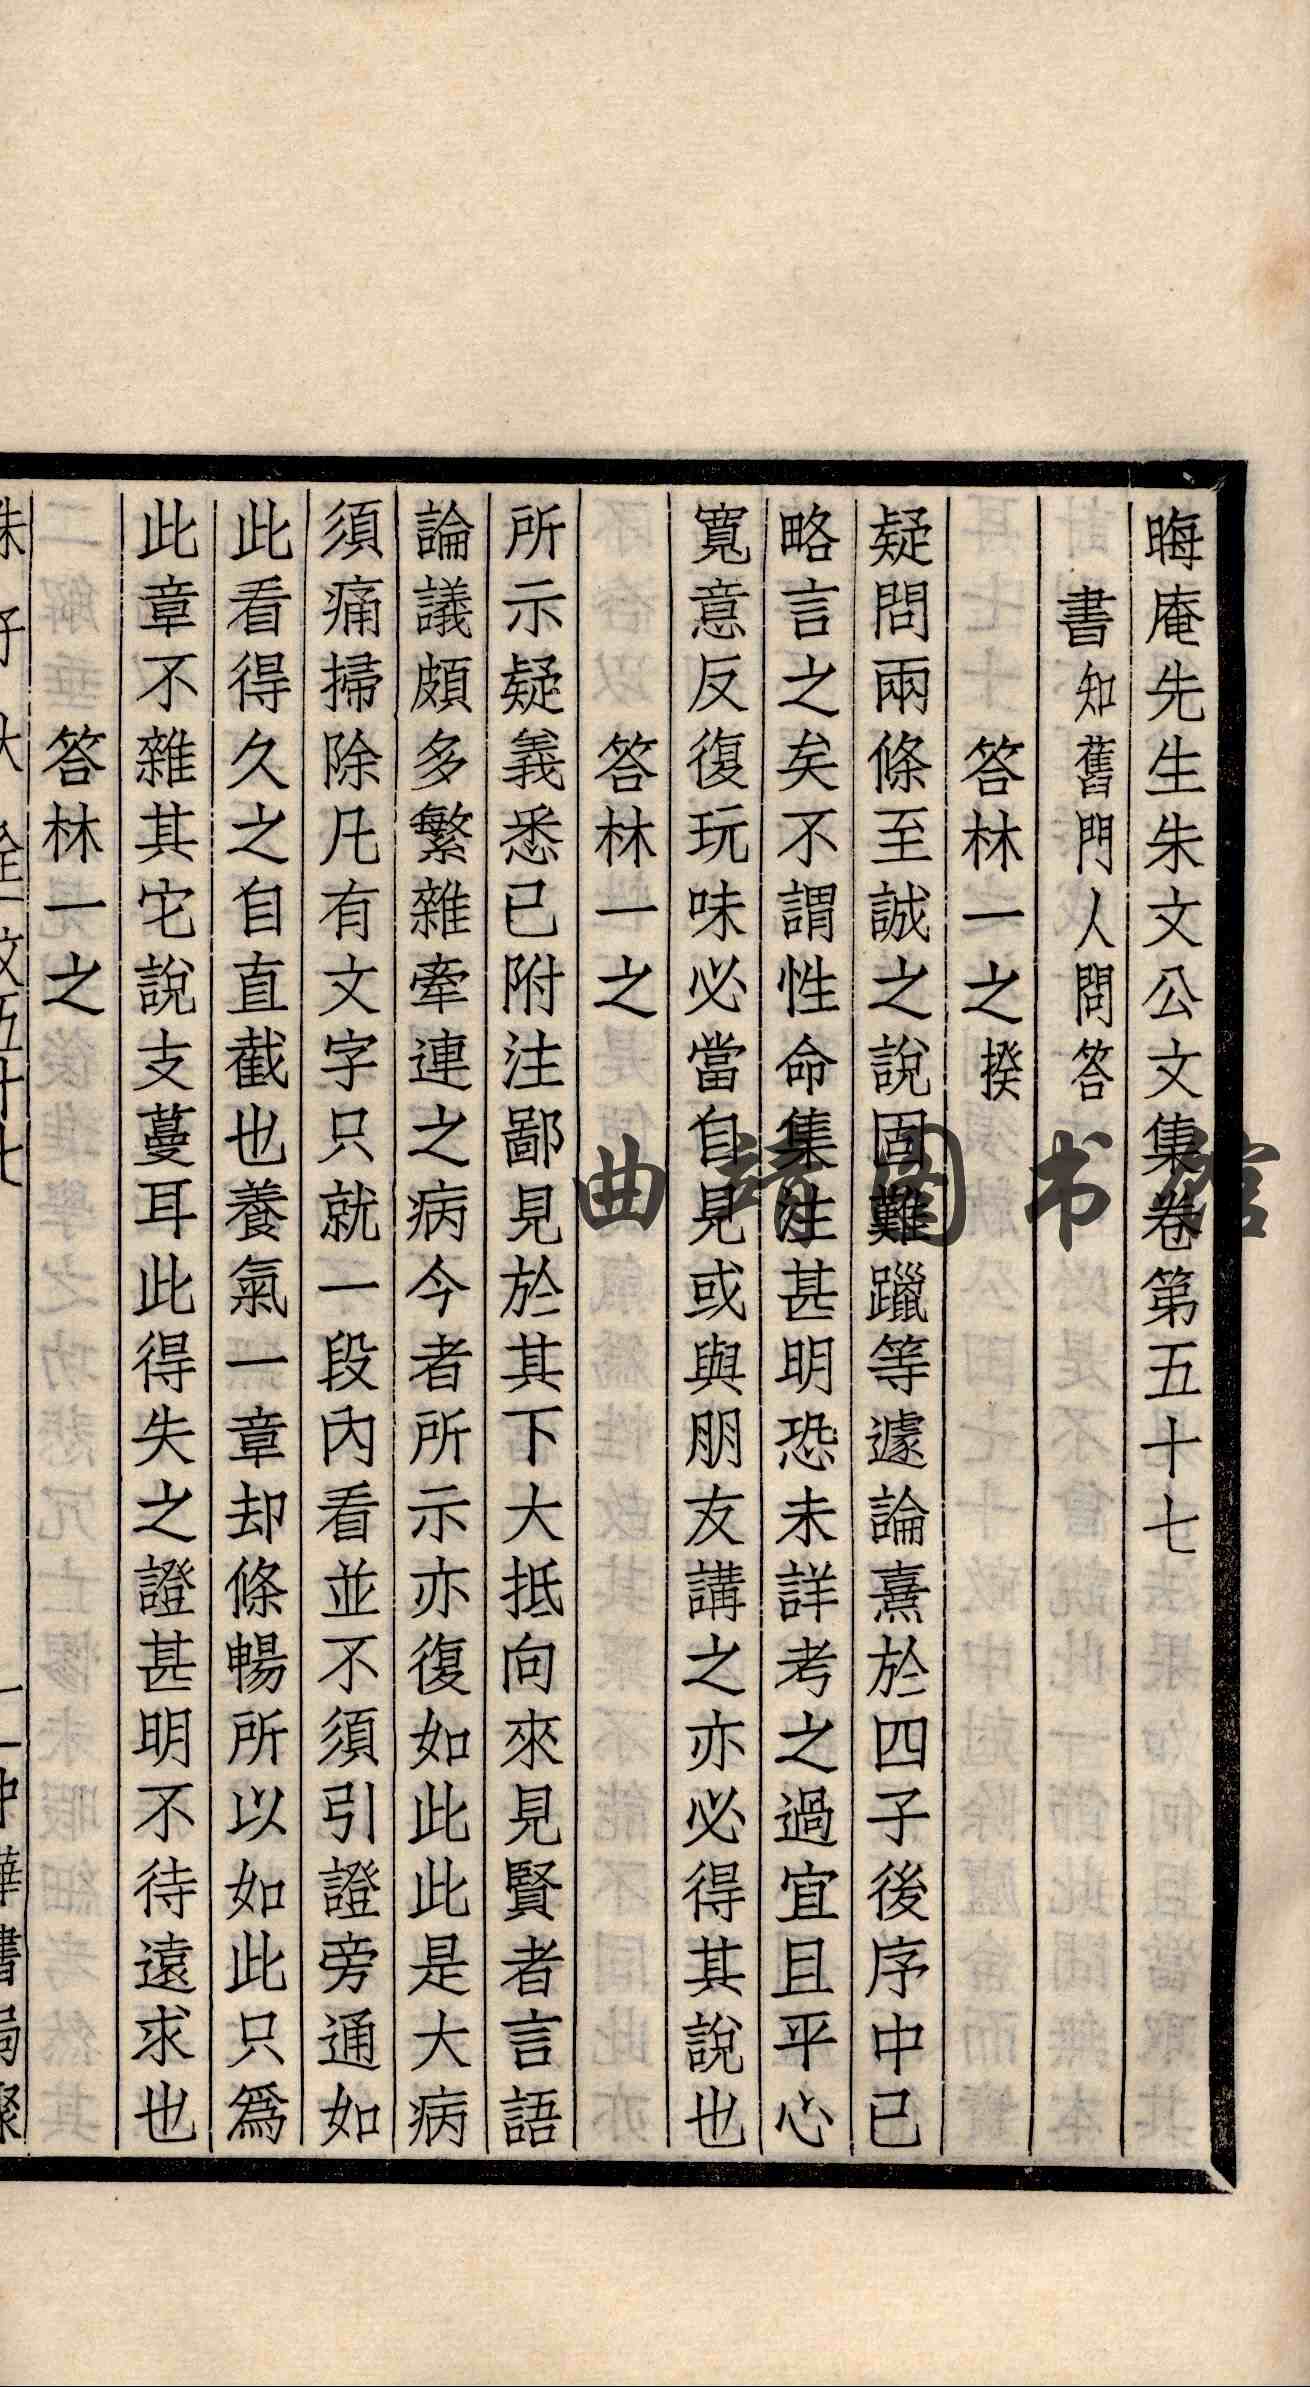 晦庵先生朱文公文集卷第五十七
書知舊門人問答
答林一之揆
疑問兩條至誠之說固難躐等遽論熹於四子後序中已
略言之矣不謂性命集注甚明恐未詳考之過宜且平心
寬意反復玩味必當自見或與朋友講之亦必得其說也
答林一之
所示疑義悉已附注鄙見於其下大抵向來見賢者言語
論議頗多繁雜牽連之病今者所示亦復如此此是大病
須痛掃除凡有文字只就一段內看並不須引證旁通如
此看得久之自直截也養氣一章却條暢所以如此只為
此章不雜其它說支蔓耳此得失之證甚明不待遠求也
答林一之
曲靖图书馆